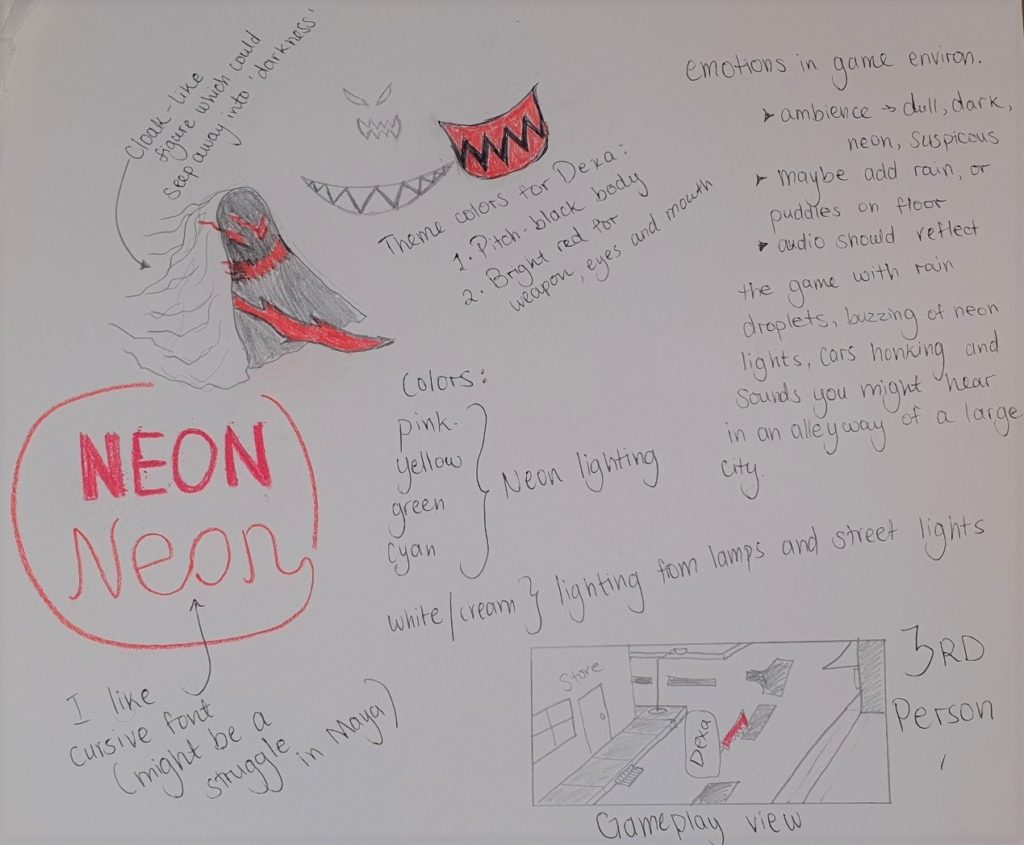 Cloak-like
figure which could
seep away into 'darkness'
Theme colors for Dexa:
1. Pitch-black body
2. Bright red for
weapon, eyes and mouth
emotions in game environ.
➤ ambience → dull, dark,
neon, suspicous
➤ maybe add rain, or
puddles on floor
➤ audio should reflect
the game with rain
droplets, buzzing of neon
lights, cars honking and
sounds you might hear
in an alleyway of a large
city.
NEON
Neon
I like
cursive font
(might be a
struggle
in Maya)
Colors:
pink.
yellow
green
cyan
} Neon lighting
white/cream } lighting from lamps and street lights
Store
Dexa
Gameplay view
3RD
Person